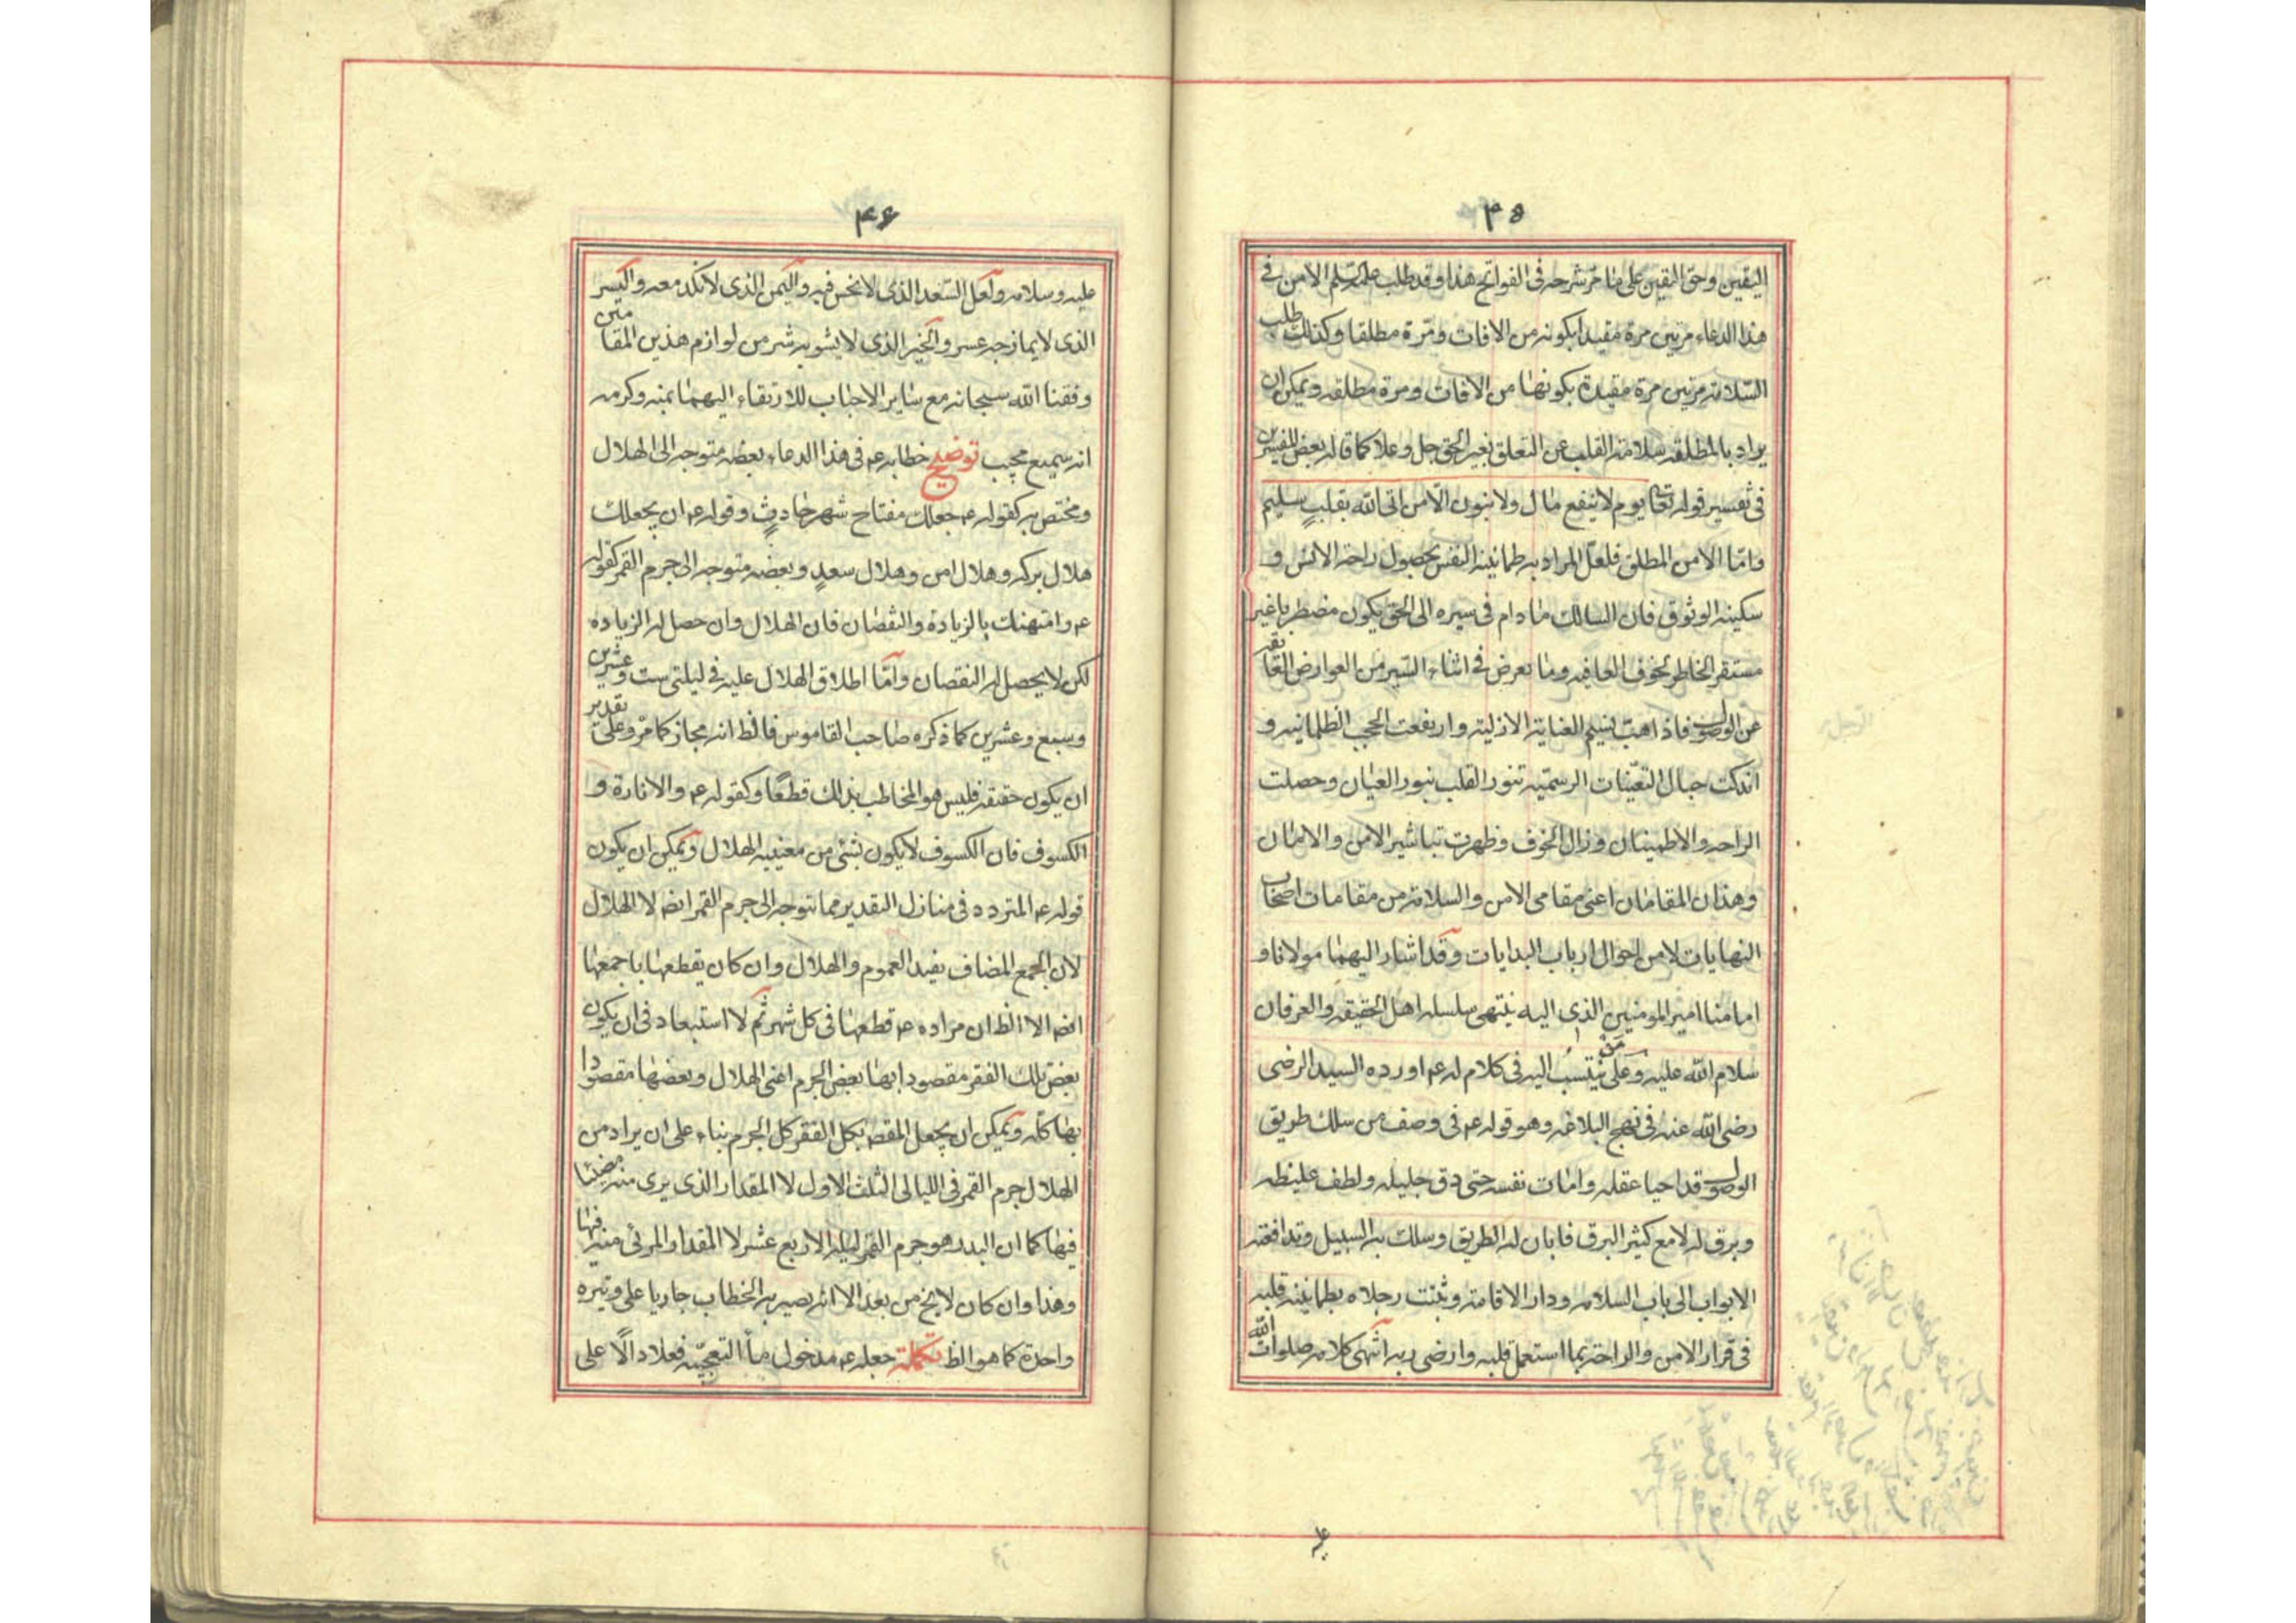 ۴۵
اليقين وحق اليقين على ما مر شرحه فى الفواتح هذا وقد طلب الامن فى
هذا الدعاء مرتين مرة مقيدا بكونه من الافات ومرة مطلقا وكذلك طلب
السلامة مرتين مرة مقيدة بكونها من الآفات ومرة مطلقه ويمكن ان
يراد بالمطلقه سلامة القلب عن التعلق بغير الحق جل وعلا كما قاله بعض المفسرين
فى تفسير قوله تعالى يوم لا ينفع مال ولا بنون الا من اتى الله بقلب سليم
واما الامن المطلق فلعل المراد به طمانينة النفس بحصول راحة الانس و
سكينة الوثوق فان السالك ما دام فى سيره الى الحق يكون مضطربا غير
مستقر الخاطر لخوف العاقبه وما يعرض فى اثناء السير من العوارض العائقه
عن الوصول فاذا هبت نسيم العناية الازلية وارتفعت الحجب الظلمانيه و
اندكت جبال التعينات الرسميه تنور القلب بنور العيان وحصلت
الراحه والاطمينان وزال الخوف وظهرت تباشير الامن والامان
وهذان المقامان اعنى مقامى الامن والسلامة من مقامات اصحاب
النهايات لا من احوال ارباب البدايات وقد اشار اليهما مولانا و
امامنا امير المومنين الذى اليه ينتهى سلسله اهل الحقيقه والعرفان
سلام الله عليه وعلى من ينتسب اليه فى كلام له ع اورده السيد الرضى
رضى الله عنه فى نهج البلاغه وهو قوله ع فى وصف من سلك طريق
الوصول قد احيا عقله وامات نفسه حتى دق جليله ولطف غليظه
وبرق له لامع كثير البرق فابان له الطريق وسلك به السبيل وتدافعته
الابواب الى باب السلامه ودار الاقامة وثبتت رجلاه بطمانينة قلبه
فى قرار الامن والراحة بما استعمل قلبه وارضى ربه انتهى كلامه صلوات الله
۴۶
عليه وسلامه ولعل السعد الذى لا نحس فيه واليمن الذى لا نكد معه واليسر
الذى لا يمازجه عسر والخير الذى لا يشوبه شر من لوازم هذين المقامين
وفقنا الله سبحانه مع ساير الاحباب للارتقاء اليهما بمنه وكرمه
انه سميع مجيب توضيح خطابه ع فى هذا الدعاء بعضه متوجه الى الهلال
ومختص به كقوله ع جعلك مفتاح شهر حادث وقوله ع ان يجعلك
هلال بركه وهلال امن وهلال سعد وبعضه متوجه الى جرم القمر كقوله
ع وامتهنك بالزيادة والنقصان فان الهلال وان حصل له الزيادة
لكن لا يحصل له النقصان واما اطلاق الهلال عليه فى ليلتى ست وعشرين
وسبع وعشرين كما ذكره صاحب القاموس فالظ انه مجاز كما مر وعلى تقدير
ان يكون حقيقه فليس هو المخاطب بذلك قطعا وكقوله ع والانارة و
الكسوف فان الكسوف لا يكون بشئ من معنييه الهلال ويمكن ان يكون
قوله ع المتردد فى منازل التقدير مما توجه الى جرم القمر ايضا لا الهلال
لان الجمع المضاف يفيد العموم والهلال وان كان يقطعها باجمعها
ايضا الا ان الظ ان مراده ع قطعها فى كل شهر ثم لا استبعاد فى ان يكون
بعض تلك الفقر مقصودا بها بعض الجرم اعنى الهلال وبعضها مقصودا
بها كله ويمكن ان يجعل المقصود بكل الفقر كل الجرم بناء على ان يراد من
الهلال جرم القمر فى الليالى الثلث الاول لا المقدار الذى يرى منه مضيئا
فيها كما ان البدر هو جرم القمر ليلة الاربع عشر لا المقدار المرئى منه فيها
وهذا وان كان لا يخ من بعد الا انه يصير به الخطاب جاريا على وتيره
واحدة كما هو الظ تكملة جعله ع مدخول ما التعجبيه فعلا دالا على